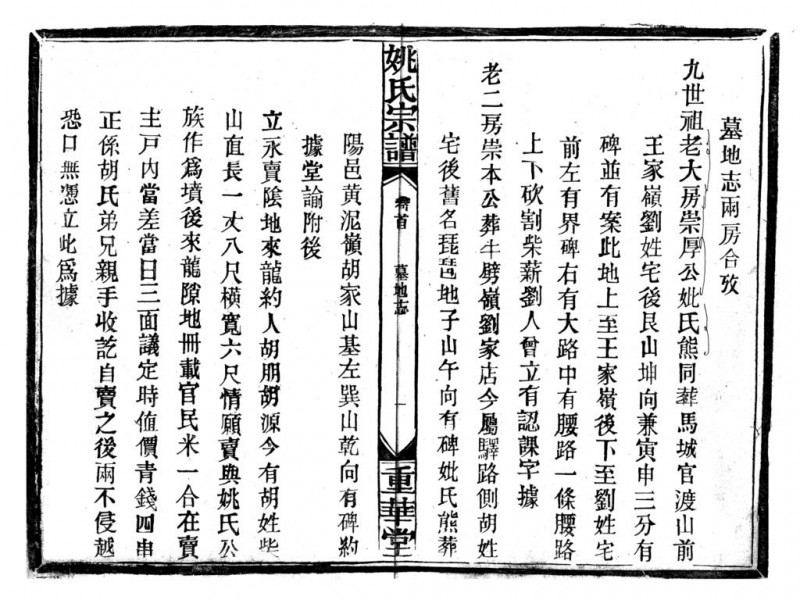 墓地志兩房合攷
九世祖老大房崇厚公妣氏熊同葬馬城官渡山前
王家嶺劉姓宅後艮山坤向兼寅申三分有
碑並有案此地上至王家嶺後下至劉姓宅
前左有界碑右有大路中有腰路一條腰路
上下砍割柴薪劉人曾立有認課字據
老二房崇本公葬牛劈嶺劉家店今屬驛路側胡姓
宅後舊名琵琶地子山午向有碑妣氏熊葬
姚氏宗譜
卷首
墓地志
一
重華堂
陽邑黄泥嶺胡家山基左巽山乾向有碑約
據堂諭附後
立永賣陰地來龍約人胡朋胡源今有胡姓柴
山直長一丈八尺橫寬六尺情願賣與姚氏公
族作爲墳後來龍隙地冊載官民米一合在賣
主戸内當差當日三面議定時值價青錢四串
正係胡氏弟兄親手收訖自賣之後兩不侵越
恐口無憑立此爲據